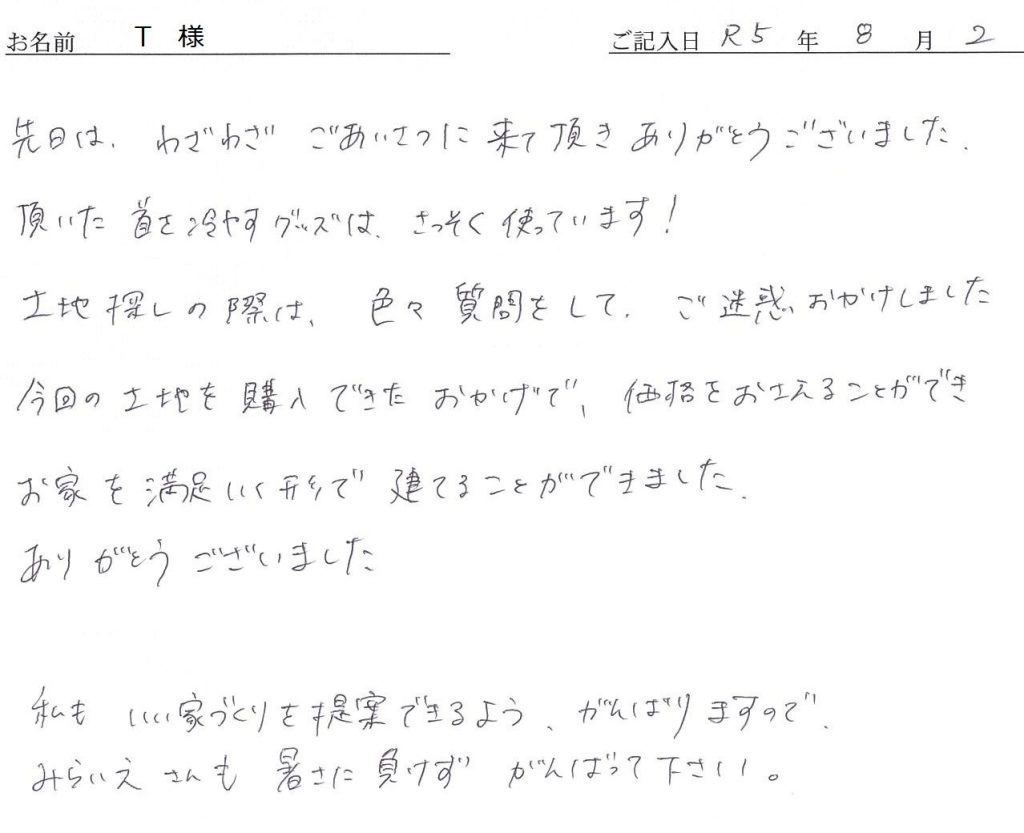 お名前 T 様 ご記入日 R5 年 8 月 2
先日は、わざわざ ごあいさつに来て頂きありがとうございました.
頂いた 首を冷やすグッズは、さっそく使っています!
土地探しの際は、色々質問をして、ご迷惑おかけしました
今回の土地を購入できたおかげで、価格をおさえることができ
お家を満足いく形で建てることができました.
ありがとうございました
私も いい家づくりを提案できるよう、がんばりますので、
みらいえさんも 暑さに負けず がんばって下さい。